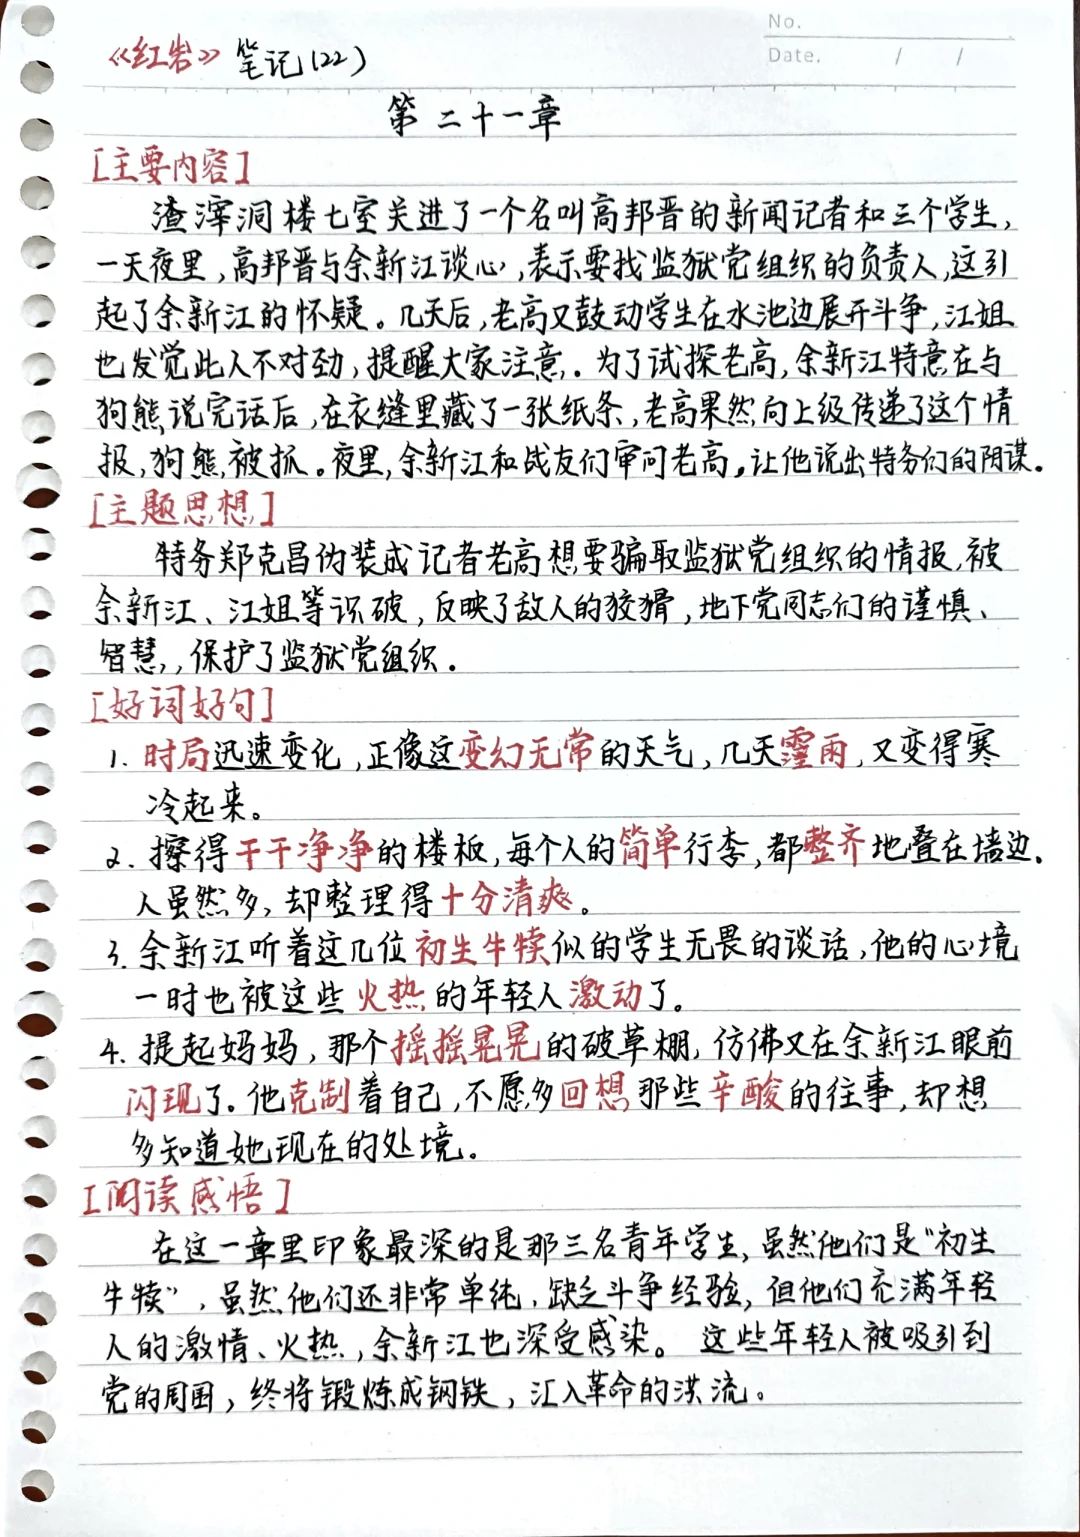 No.
Date. / /
《红岩》笔记(22)
第二十一章
[主要内容]
渣滓洞楼七室关进了一个名叫高邦晋的新闻记者和三个学生,
一天夜里,高邦晋与余新江谈心,表示要找监狱党组织的负责人,这引
起了余新江的怀疑。几天后,老高又鼓动学生在水池边展开斗争,江姐
也发觉此人不对劲,提醒大家注意。为了试探老高,余新江特意在与
狗熊说完话后,在衣缝里藏了一张纸条,老高果然向上级传递了这个情
报,狗熊被抓。夜里,余新江和战友们审问老高,让他说出特务们的阴谋。
[主题思想]
特务郑克昌伪装成记者老高想要骗取监狱党组织的情报,被
余新江、江姐等识破,反映了敌人的狡猾,地下党同志们的谨慎、
智慧,,保护了监狱党组织。
[好词好句]
1. 时局迅速变化,正像这变幻无常的天气,几天霪雨,又变得寒
冷起来。
2. 擦得干干净净的楼板,每个人的简单行李,都整齐地叠在墙边.
人虽然多,却整理得十分清爽。
3. 余新江听着这几位初生牛犊似的学生无畏的谈话,他的心境
一时也被这些火热的年轻人激动了。
4. 提起妈妈,那个摇摇晃晃的破草棚,仿佛又在余新江眼前
闪现了。他克制着自己,不愿多回想那些辛酸的往事,却想
多知道她现在的处境。
[阅读感悟]
在这一章里印象最深的是那三名青年学生,虽然他们是“初生
牛犊”,虽然他们还非常单纯,缺乏斗争经验,但他们充满年轻
人的激情、火热,余新江也深受感染。这些年轻人被吸引到
党的周围,终将锻炼成钢铁,汇入革命的洪流。